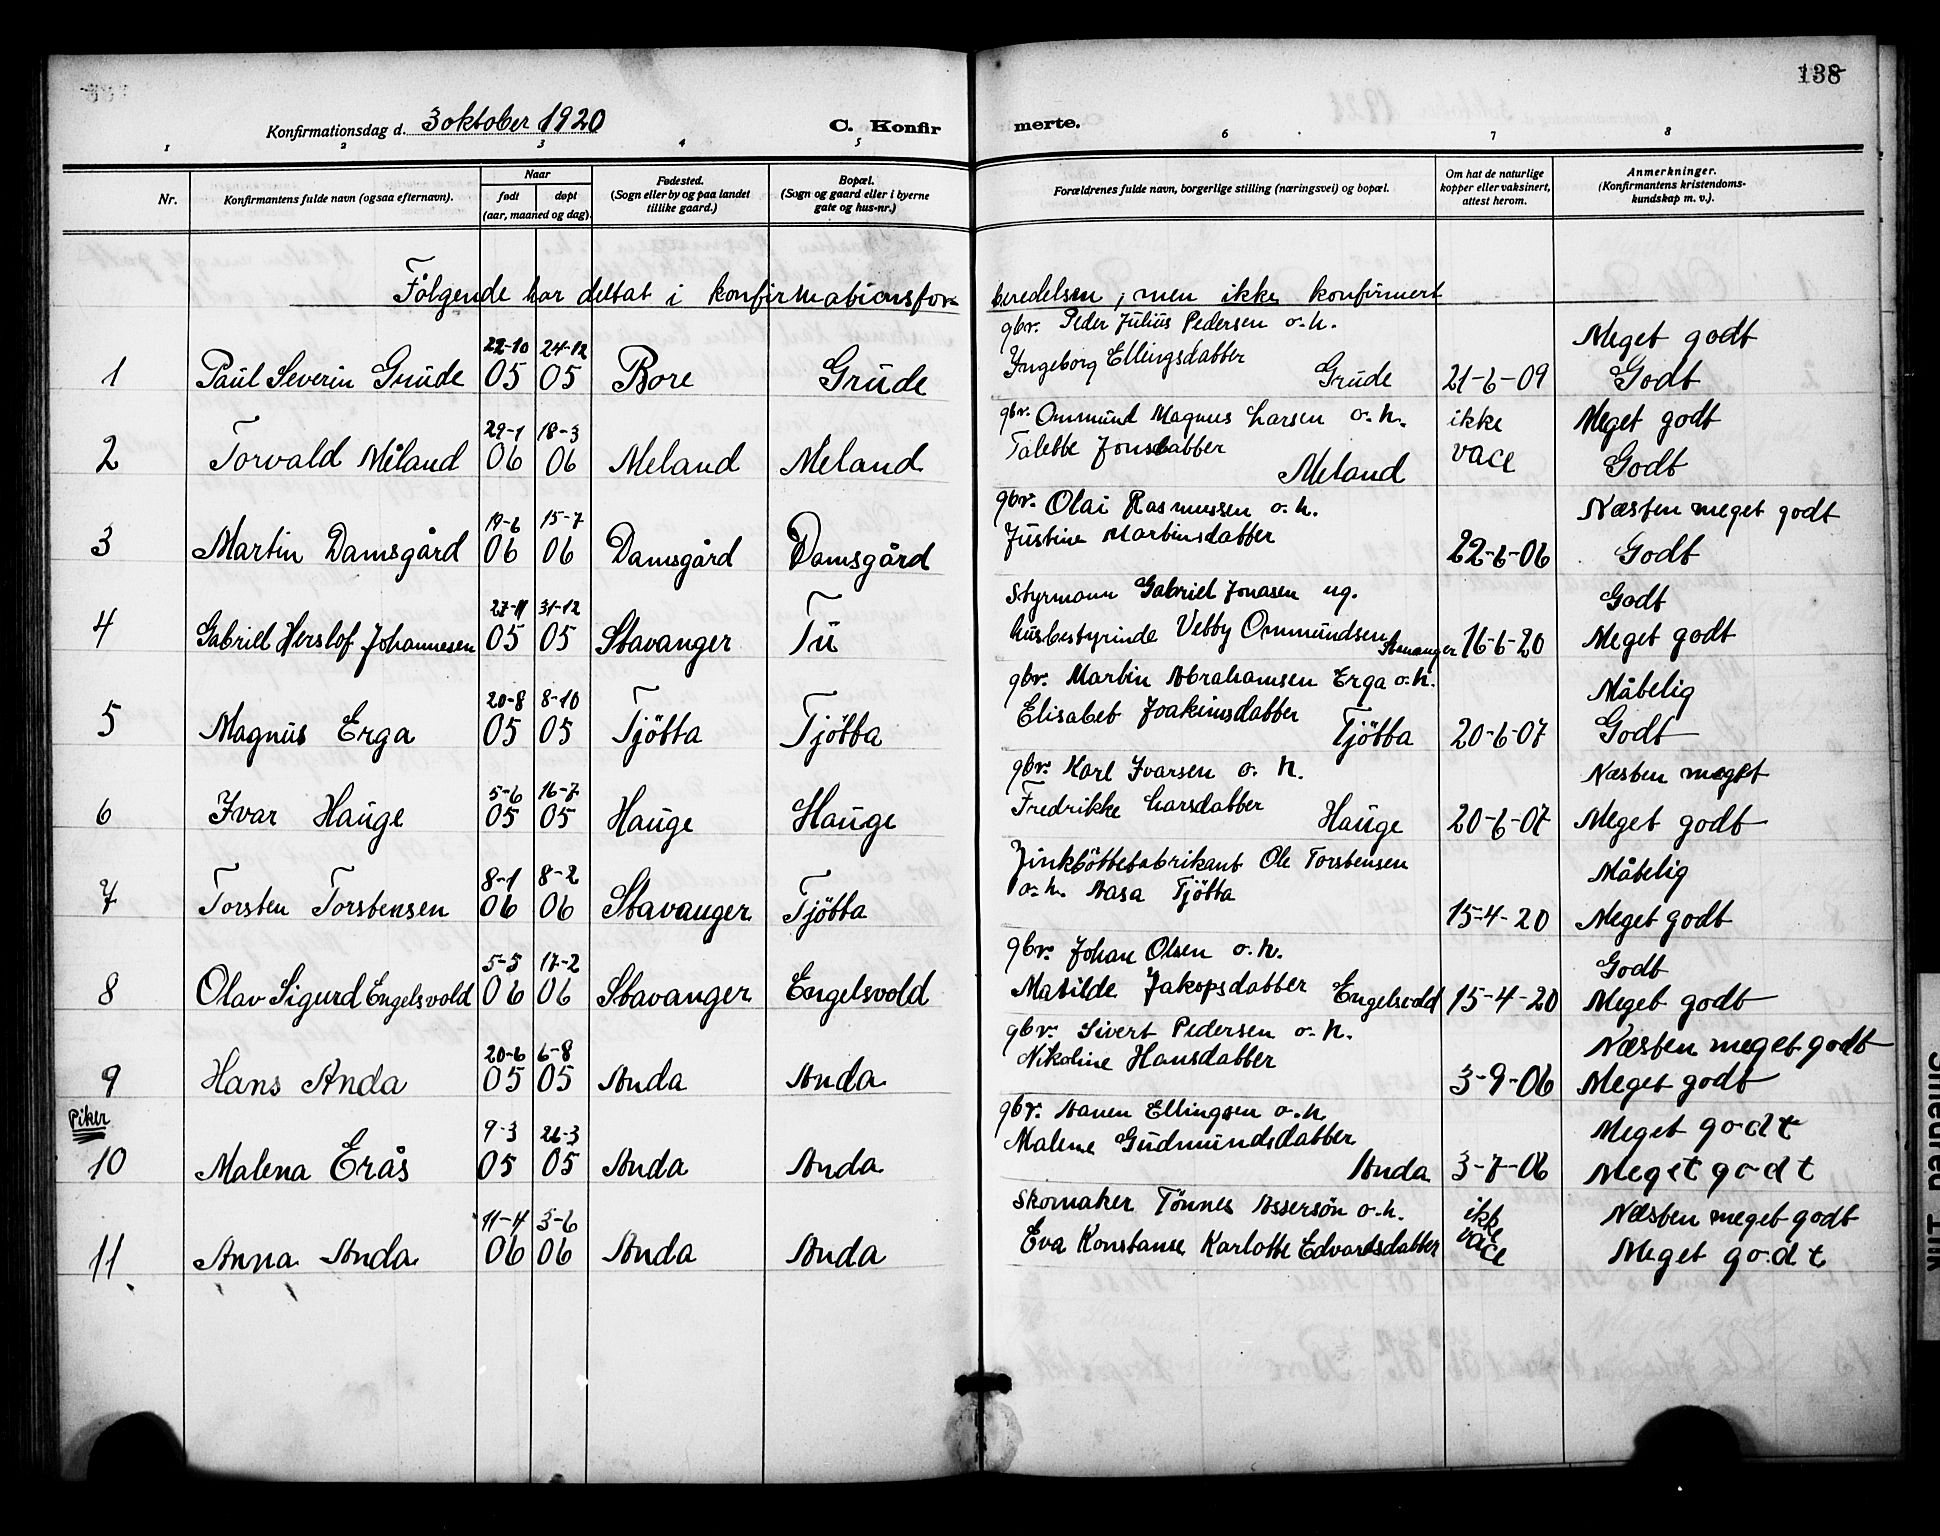 138
Konfirmationsdag d. 3 oktober 1920 C. Konfirmerte.
1 2 3 4 5 6 7 8
Nr. Konfirmantens fulde navn (ogsaa efternavn). Naar født døpt (aar, maaned og dag). Fødested. (Sogn eller by og paa landet tillike gaard.) Bopæl. (Sogn og gaard eller i byerne gate og hus-nr.) Forældrenes fulde navn, borgerlige stilling (næringsvei) og bopæl. Om hat de naturlige kopper eller vaksinert, attest herom. Anmerkninger. (Konfirmantens kristendomskundskap m. v.).
Følgende har deltat i konfirmationsforberedelsen, men ikke konfirmert
1 Paul Severin Grude 22-10 05 24-12 05 Bore Grude gbr. Peder Julius Pedersen o. h. Ingeborg Ellingsdatter Grude 21-6-09 Meget godt Godt
2 Torvald Måland 29-1 06 18-3 06 Meland Meland gbr. Ommund Magnus Larsen o. h. Talette Jonsdatter Meland ikke vacc Meget godt Godt
3 Martin Damsgård 19-6 06 15-7 06 Damsgård Damsgård gbr. Olai Rasmussen o. h. Justine Martinsdatter 22-6-06 Næsten meget godt Godt
4 Gabriel Herslof Johannesen 27-11 05 31-12 05 Stavanger Tu Styrmann Gabriel Jonasen ug. husbestyrinde Vetby Ommundsen Stavanger 16-6-20 Godt Meget godt
5 Magnus Erga 20-8 05 8-10 05 Tjøtta Tjøtta gbr. Martin Abrahamsen Erga o. h. Elisabet Joakimsdatter Tjøtta 20-6-07 Måtelig Godt
6 Ivar Hauge 5-6 05 16-7 05 Hauge Hauge gbr. Karl Ivarsen o. h. Fredrikke Larsdatter Hauge 20-6-07 Næsten meget Meget godt
7 Torsten Torstensen 8-1 06 8-2 06 Stavanger Tjøtta Zinkbøttefabrikant Ole Torstensen o. h. Aasa Tjøtta 15-4-20 Måtelig Meget godt
8 Olav Sigurd Engelsvold 5-5 06 17-2 06 Stavanger Engelsvold gbr. Johan Olsen o. h. Matilde Jakopsdatter Engelsvold 15-4-20 Godt Meget godt
9 Hans Anda 20-6 05 6-8 05 Anda Anda gbr. Sivert Pedersen o. h. Nikoline Hansdatter 3-9-06 Næsten meget godt Meget godt
Piker
10 Malena Erås 9-3 05 26-3 05 Anda Anda gbr. Aanen Ellingsen o. h. Malene Gudmundsdatter Anda 3-7-06 Meget godt Meget godt
11 Anna Anda 11-4 06 3-6 06 Anda Anda Skomaker Tønnes Assersøn o. h. Eva Konstanse Karlotte Edvardsdatter ikke vacc Næsten meget godt Meget godt